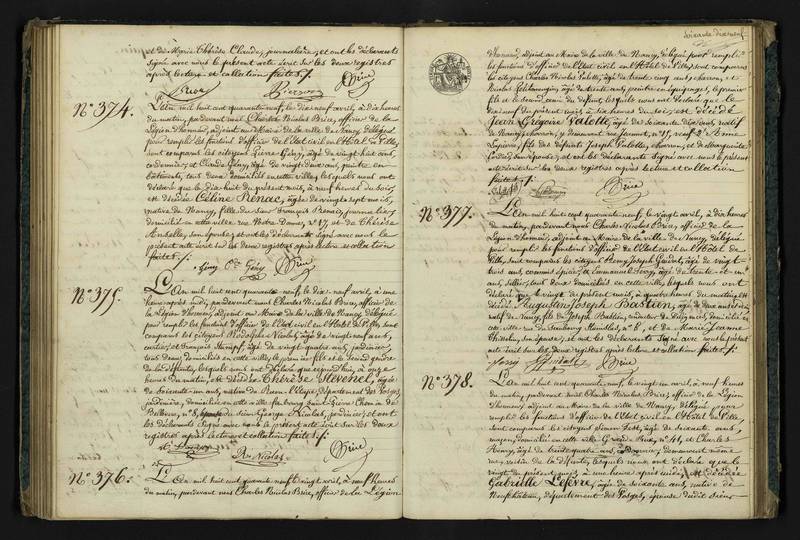 et de Marie Thérèse Claude, journalière, et ont les déclarants
signé avec nous le présent acte écrit sur les deux registres
après lecture et collation faites /.
Nº 374.
L'an mil huit cent quarante neuf, le dix neuf avril, à dix heures
du matin, pardevant nous Charles Nicolas Brice, officier de la
Légion d'honneur, adjoint au Maire de la ville de Nancy, délégué
pour remplir les fonctions d'officier de l'Etat civil en l'Hôtel de Ville,
sont comparus les citoyens Pierre Gény, âgé de vingt huit ans,
cordonnier, et Claude Gény, âgé de vingt deux ans, peintre en
bâtiments, tous deux domiciliés en cette ville, lesquels nous ont
déclaré que le dix huit du présent mois, à neuf heures du soir,
est décédée Céline Renac, âgée de vingt sept mois,
native de Nancy, fille de François Renac, journalier,
domicilié en cette ville rue Notre Dame, nº 17, et de Thérèse
Anselle, son épouse; et ont les déclarants signé avec nous le
présent acte écrit sur les deux registres après lecture et collation
faites /.
Gény Cde Gény Brice
Nº 375.
L'an mil huit cent quarante neuf, le dix neuf avril, à une
heure après midi, pardevant nous Charles Nicolas Brice, officier de
la Légion d'honneur, adjoint au Maire de la ville de Nancy, délégué
pour remplir les fonctions d'officier de l'Etat civil en l'Hôtel de Ville, sont
comparus les citoyens Rodolphe Nicolas, âgé de vingt neuf ans,
cartier, et François Stempf, âgé de vingt quatre ans, jardinier,
tous deux domiciliés en cette ville, le premier fils et le second gendre
de la défunte, lesquels nous ont déclaré que aujourd'hui, à onze
heures du matin, est décédée Thérèse Stevenel, âgée
de soixante un ans, native de Raon l'Etape, département des Vosges,
jardinière, domiciliée en cette ville faubourg Saint Pierre, Chemin de
Bellevue, nº 8, épouse du sieur George Nicolas, jardinier; et ont
les déclarants signé avec nous le présent acte écrit sur les deux
registres après lecture et collation faites /.
Rn Nicolas Brice
Nº 376.
L'an mil huit cent quarante neuf, le vingt avril, à neuf heures
du matin, pardevant nous Charles Nicolas Brice, officier de la Légion
soixante dix neuf
d'honneur, adjoint au Maire de la ville de Nancy, délégué pour remplir
les fonctions d'officier de l'Etat civil en l'Hôtel de Ville, sont comparus
les citoyens Charles Nicolas Palotte, âgé de trente cinq ans, charron, et
Nicolas âgé de trente ans, peintre en équipages, le premier
fils et le second du défunt, lesquels nous ont déclaré que le
dix neuf du présent mois, à dix heures du soir, est décédé
Jean Grégoire Palotte, âgé de soixante dix ans, natif
de Nancy, charron, y demeurant rue nº 15, veuf d'Anne
Lapierre, fils des défunts Joseph Palotte, charron, et de Marguerite
son épouse; et ont les déclarants signé avec nous le présent
acte écrit sur les deux registres après lecture et collation
faites /.
Brice
Nº 377.
L'an mil huit cent quarante neuf, le vingt avril, à dix heures
du matin, pardevant nous Charles Nicolas Brice, officier de la
Légion d'honneur, adjoint au Maire de la ville de Nancy, délégué
pour remplir les fonctions d'officier de l'Etat civil en l'Hôtel de
Ville, sont comparus les citoyens Remy Joseph âgé de vingt
trois ans, commis épicier, et Emmanuel âgé de trente un
ans, sellier, tous deux domiciliés en cette ville, lesquels nous ont
déclaré que le vingt du présent mois, à quatre heures du matin, est
décédé Augustin Joseph Bastien, âgé de deux ans
natif de Nancy, fils de Joseph Bastien, domicilié en
cette ville rue du faubourg Stanislas, nº 8, et de Marie Jeanne
son épouse; et ont les déclarants signé avec nous le présent
acte écrit sur les deux registres après lecture et collation faites /.
Brice
Nº 378.
L'an mil huit cent quarante neuf, le vingt un avril, à neuf heures
du matin, pardevant nous Charles Nicolas Brice, officier de la Légion
d'honneur, adjoint au Maire de la ville de Nancy, délégué pour
remplir les fonctions d'officier de l'Etat civil en l'Hôtel de Ville,
sont comparus les citoyens Simon âgé de soixante ans,
maçon, domicilié en cette ville Grande Rue, nº 41, et Charles
Henry, âgé de trente quatre ans, demeurant même
rue, voisin de la défunte, lesquels nous ont déclaré que le
vingt du présent mois, à une heure après midi, est décédée
Gabrielle Lefèvre, âgée de soixante ans, native de
Neufchâteau, département des Vosges, épouse dudit sieur